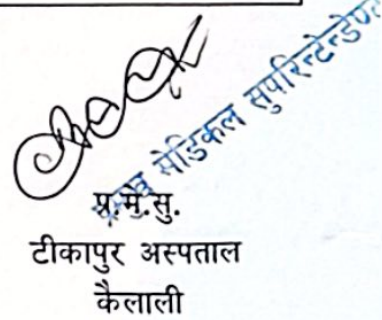 प्रमुख मेडिकल सुपरिन्टेन्डेण्ट
प्र.मे.सु.
टीकापुर अस्पताल
कैलाली